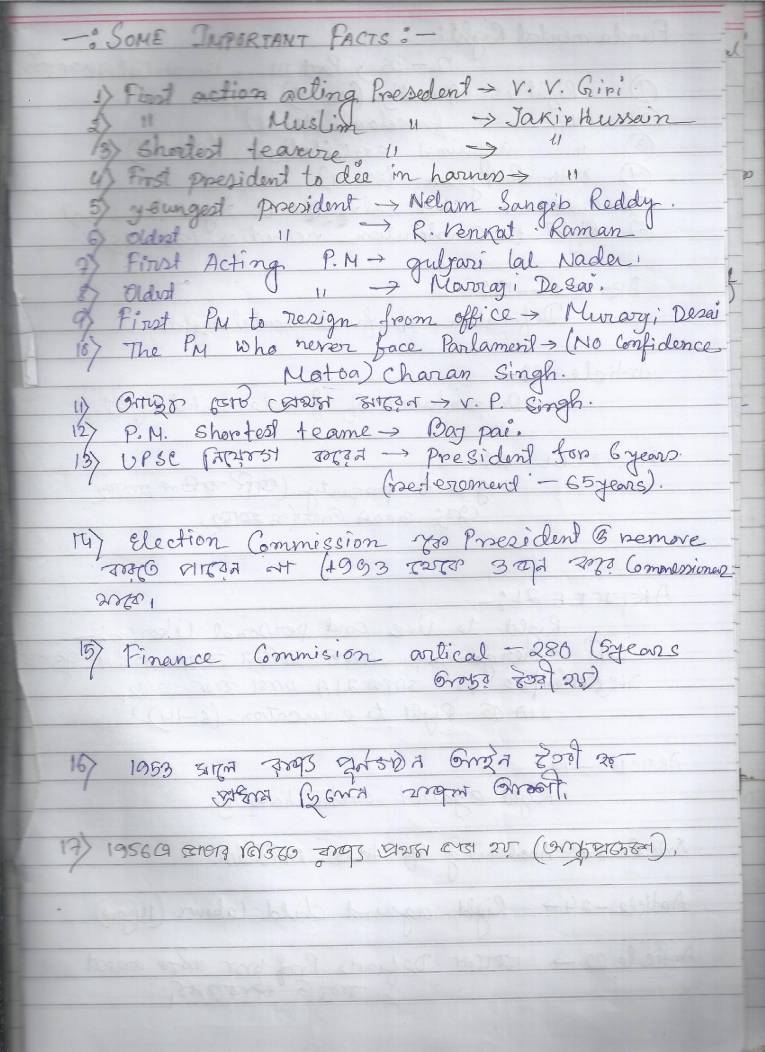 —: SOME IMPORTANT FACTS :—
1) First action acting Presedent → V. V. Giri
2) " Muslim " → Jakir Hussain
3) Shortest tearure " → "
4) First president to die in harness → "
5) youngest president → Nelam Sangib Reddy.
6) oldest " → R. Venkat Raman
7) First Acting P.M → gulzari lal Nada.
8) Oldest " → Morragi Desai.
9) First PM to resign from office → Muraryi Desai
10) The PM who never face Parlament → (No confidence
Motoa) Charan Singh.
11) ভোট প্রথম হারেন → V. P. Singh.
12) P.M. Shortest teame → Baj pai.
13) UPSC নিয়োগ করেন → President for 6 years
(reterement - 65 years).
14) Election Commission কে President ও remove
করতে পারেন না (1993 থেকে ৩ জন করে Commessioner
থাকে।
15) Finance Commision artical - 280 (5 years
অন্তর তৈরী হয়)
16) 1953 সালে রাজ্য পুর্নগঠন আইন তৈরী হয়
প্রধান ছিলেন ফজল আলী।
17) 1956 এ ভাষার ভিত্তিতে রাজ্য প্রথম হয় (অন্ধ্রপ্রদেশ).